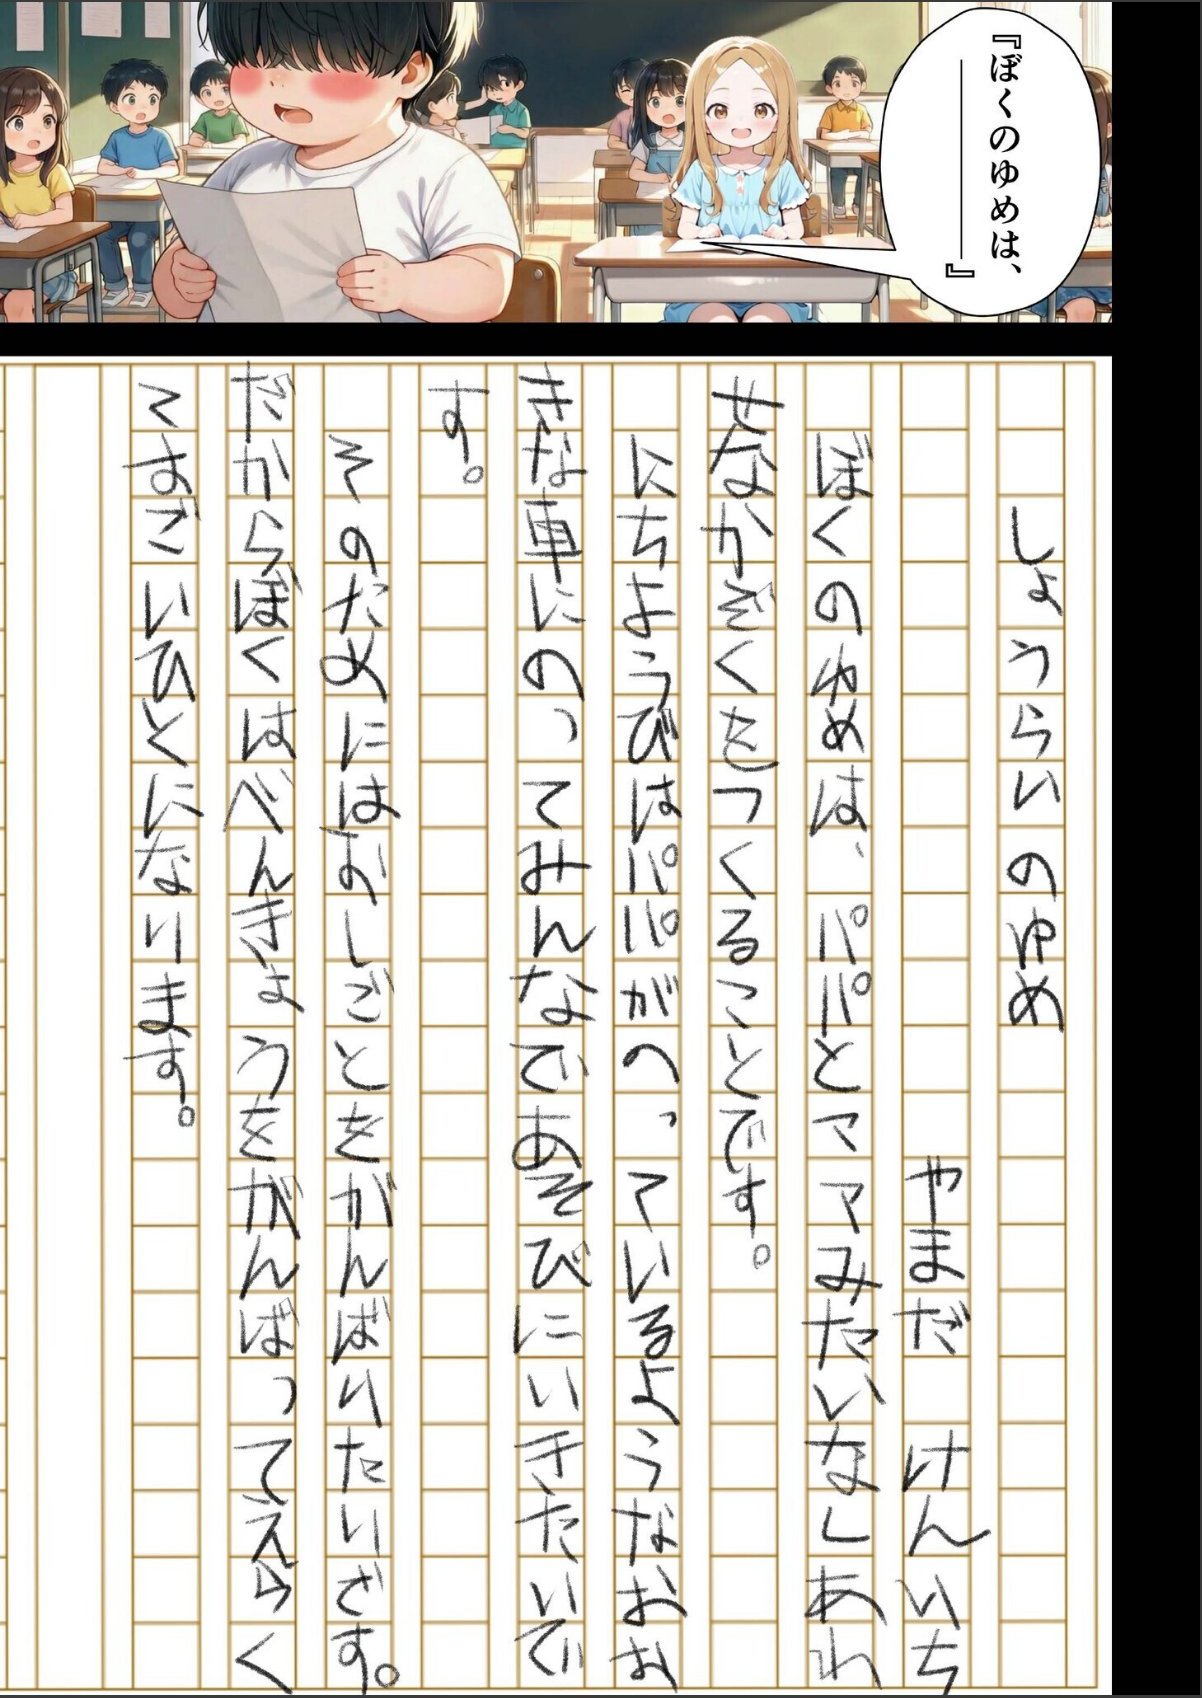 『ぼくのゆめは、
――――』
しょうらいのゆめ
やまだ けんいち
ぼくのゆめは、パパとママみたいなしあわ
せなかぞくをつくることです。
にちようびはパパがのっているようなおお
きな車にのってみんなであそびにいきたいで
す。
そのためにはおしごとをがんばりたいざす。
だからぼくはべんきょうをがんばってえらく
てすごいひとになります。